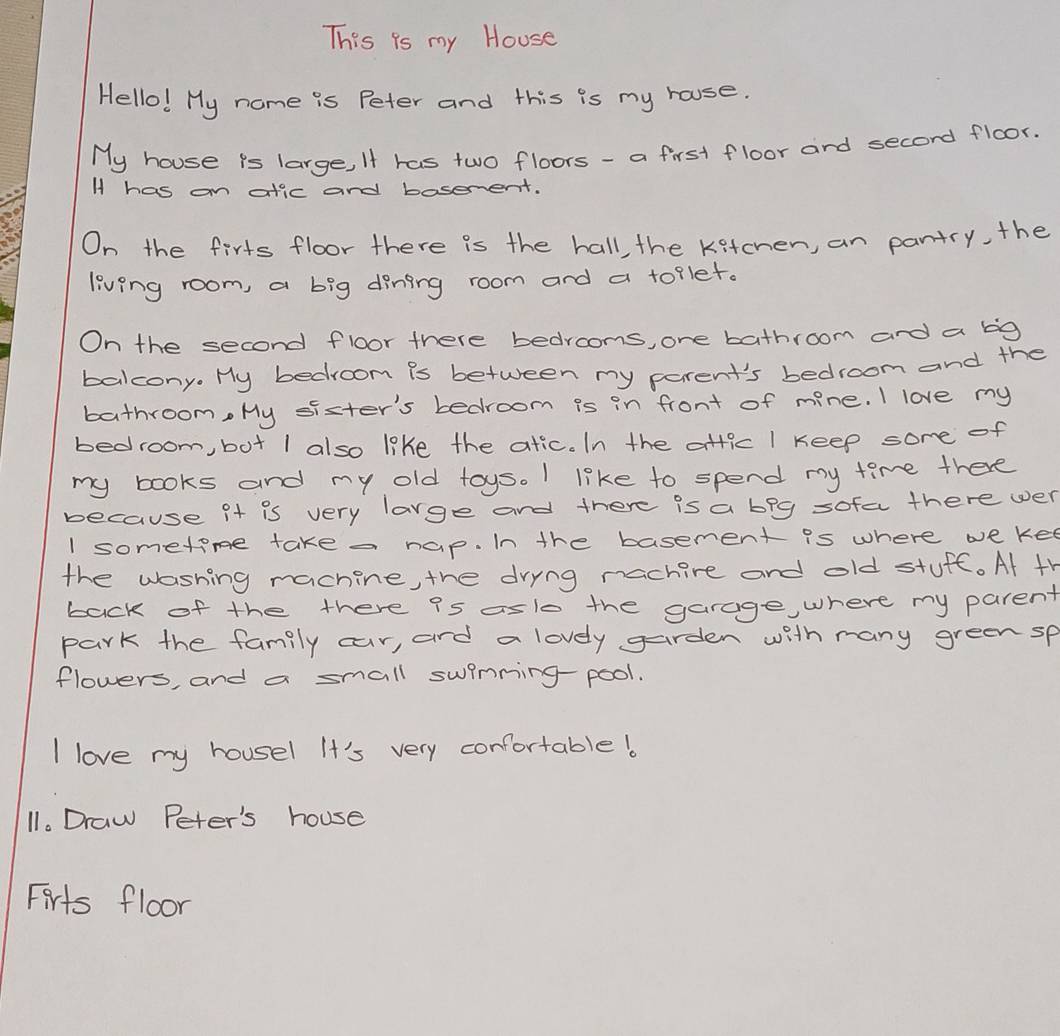 This is my House
Hello! My name is Peter and this is my house.
My house is large, It has two floors - a first floor and second floor.
It has an atic and basement.
On the firts floor there is the hall, the kitchen, an pantry, the
living room, a big dining room and a toilet.
On the second floor there bedrooms, one bathroom and a big
balcony. My bedroom is between my parent's bedroom and the
bathroom. My sister's bedroom is in front of mine. I love my
bedroom, but I also like the atic. In the attic I keep some of
my books and my old toys. I like to spend my time there
because it is very large and there is a big sofa there wer
I sometime take a nap. In the basement is where we kee
the washing machine, the dryng machine and old stuff. At th
back of the there is aslo the garage, where my parent
park the family car, and a lovely garden with many green sp
flowers, and a small swimming-pool.
I love my house! It's very confortable!
11. Draw Peter's house
Firts floor